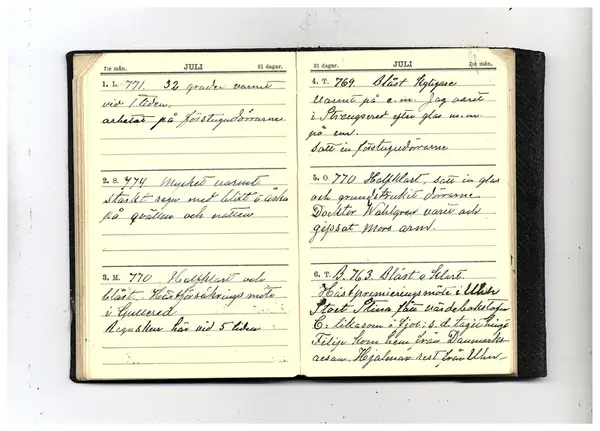 7:de mån. JULI 31 dagar.
1. L. 771. 32 grader varmt
vid 1 tiden.
arbetat på förstugudörrarne
2. S. 774 Mycket varmt
starkt regn med blixt o åska
på qvällen och natten
3. M. 770 Halfklart och
blåst. Hästförsäkrings möte
i Gullered
Regnskur här vid 5 tiden
31 dagar. JULI 7:de mån.
4. T. 769. Blåst Kyligare
varmt på e.m. Jag varit
i Strengsered efter glas m.m.
på em.
satt in förstugudörrarne
5. O. 770 Halfklart, satt in glas
och grundstrukit dörrarne
Docktor Wahlgren varit och
gipsat Mors arm.
6. T. B. 763 Blåst o Klart.
Hästpremieringsmöte i
Stoet Stina fått
E: likasom i fjol: s.d.
Filip kom hem från Danmarks-
resan. Hjalmar rest från